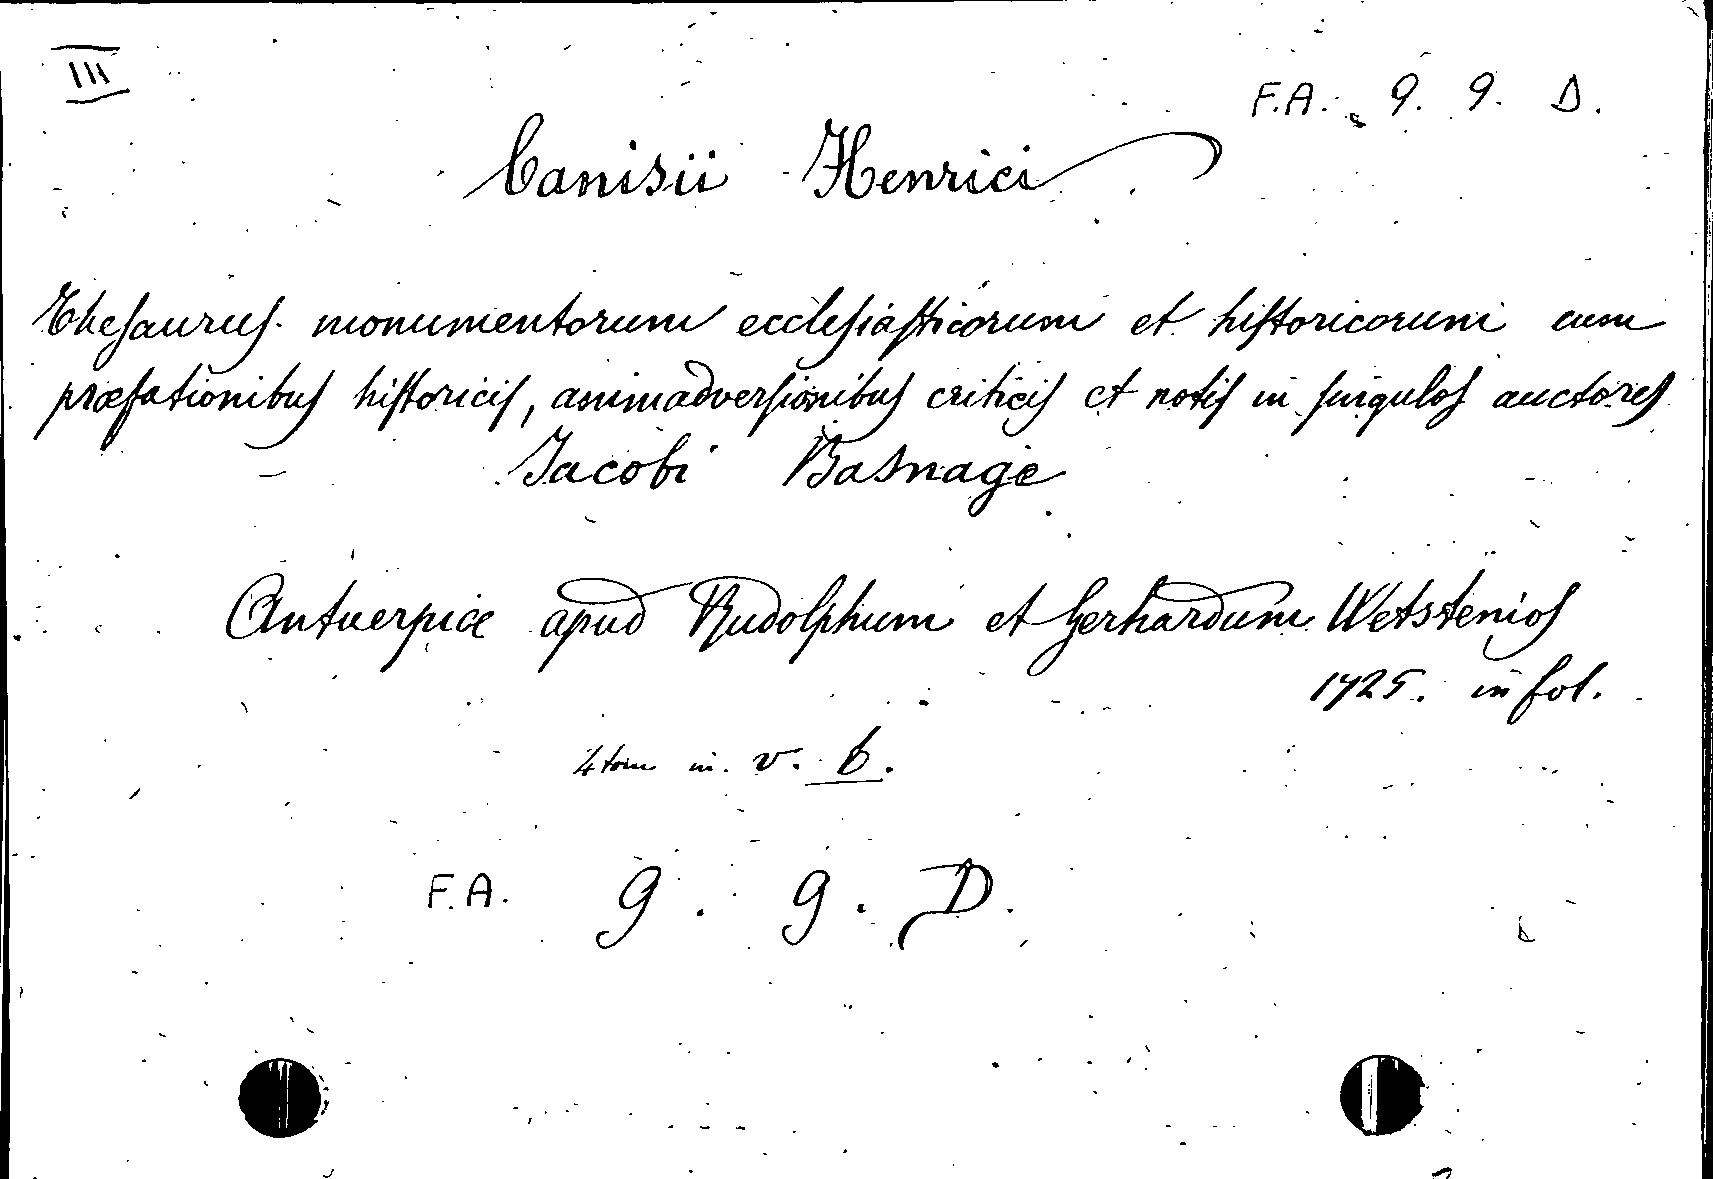 III
F.A. 9. 9. D.
Canisii Henrici
Thesaurus monumentorum ecclesiasticorum et historicorum cum
præfationibus historicis, animadversionibus criticis et notis in singulos auctores
Jacobi Basnage
Antverpiæ apud Rudolphum et Gerhardum Wetstenios
1725. in fol.
4 tom in v. 6.
F.A. 9. 9. D.